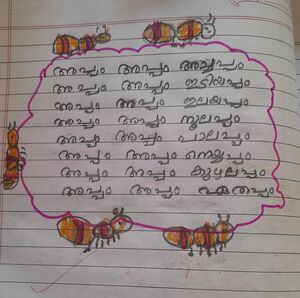 അപ്പം അപ്പം അച്ചപ്പം
അപ്പം അപ്പം ഇടിയപ്പം
അപ്പം അപ്പം ഇലയപ്പം
അപ്പം അപ്പം നൂലപ്പം
അപ്പം അപ്പം പാലപ്പം
അപ്പം അപ്പം നെയ്യപ്പം
അപ്പം അപ്പം കുഴലപ്പം
അപ്പം അപ്പം